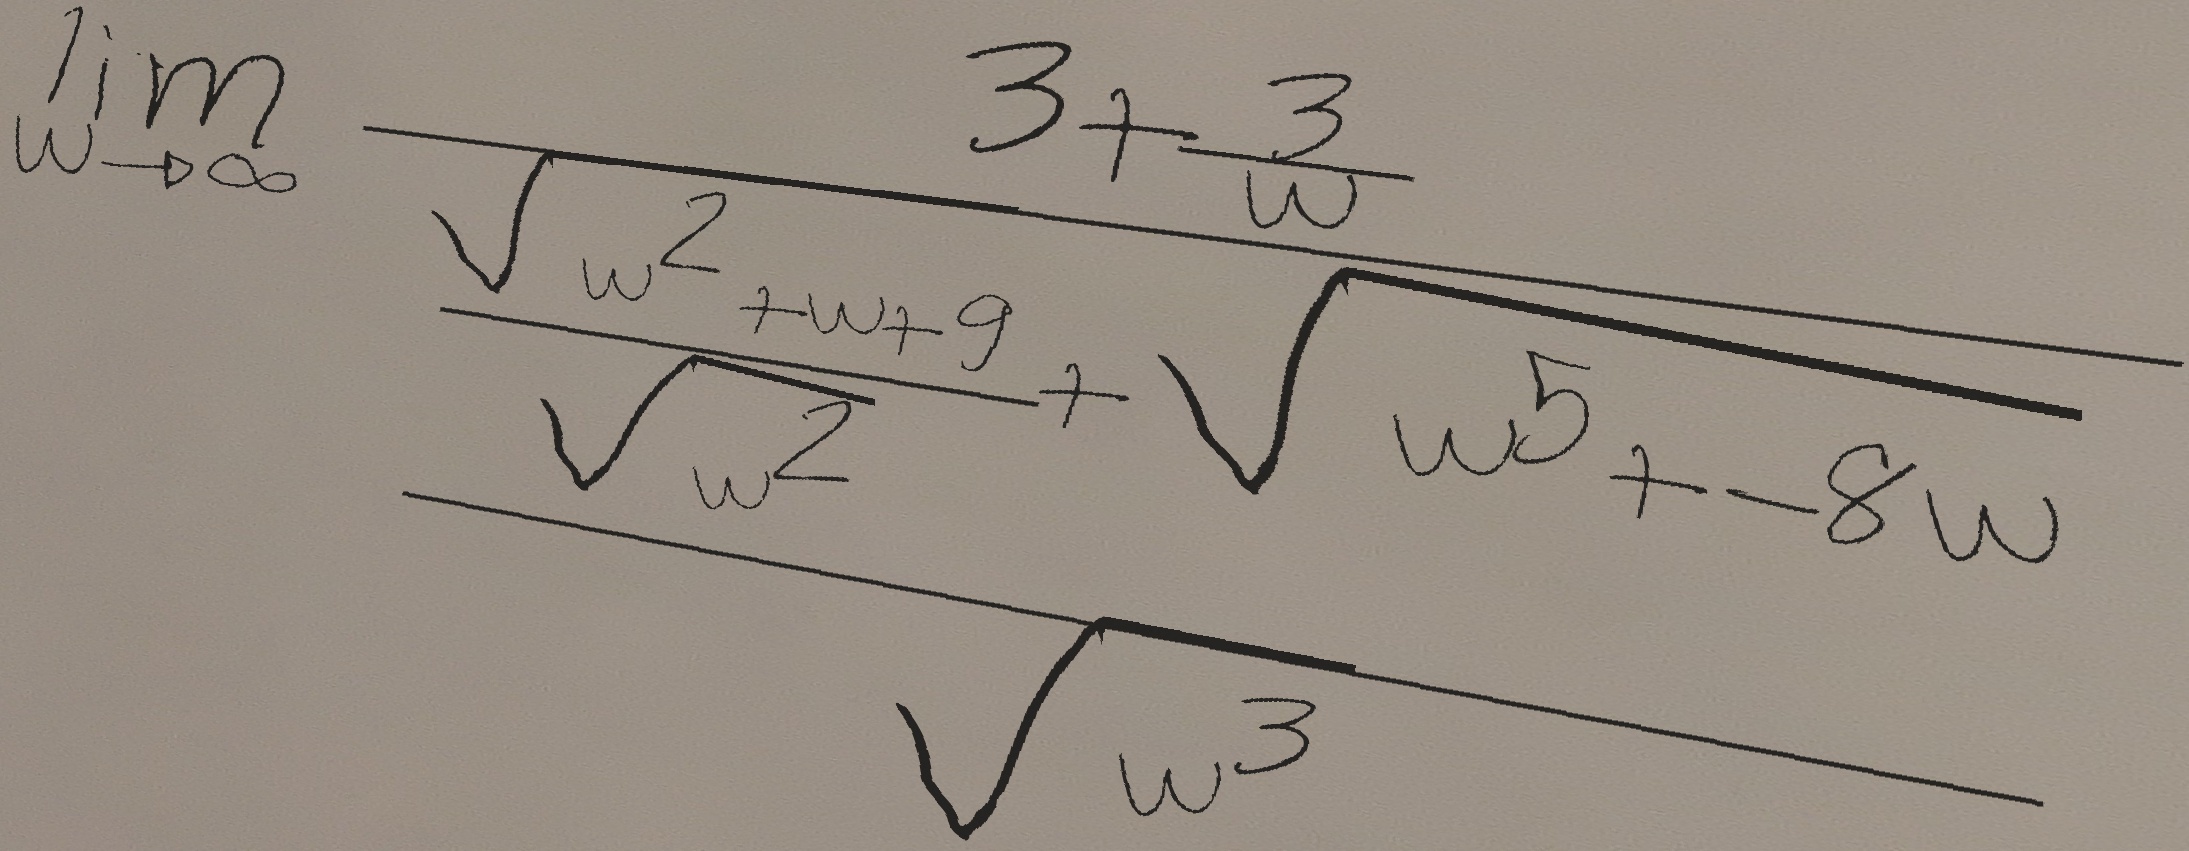 \lim_{w \to \infty} \frac{3 + \frac{3}{w}}{\frac{\frac{\sqrt{w^2 + w + 9}}{\sqrt{w^2}} + \sqrt{w^5 + -8w}}{\sqrt{w^3}}}